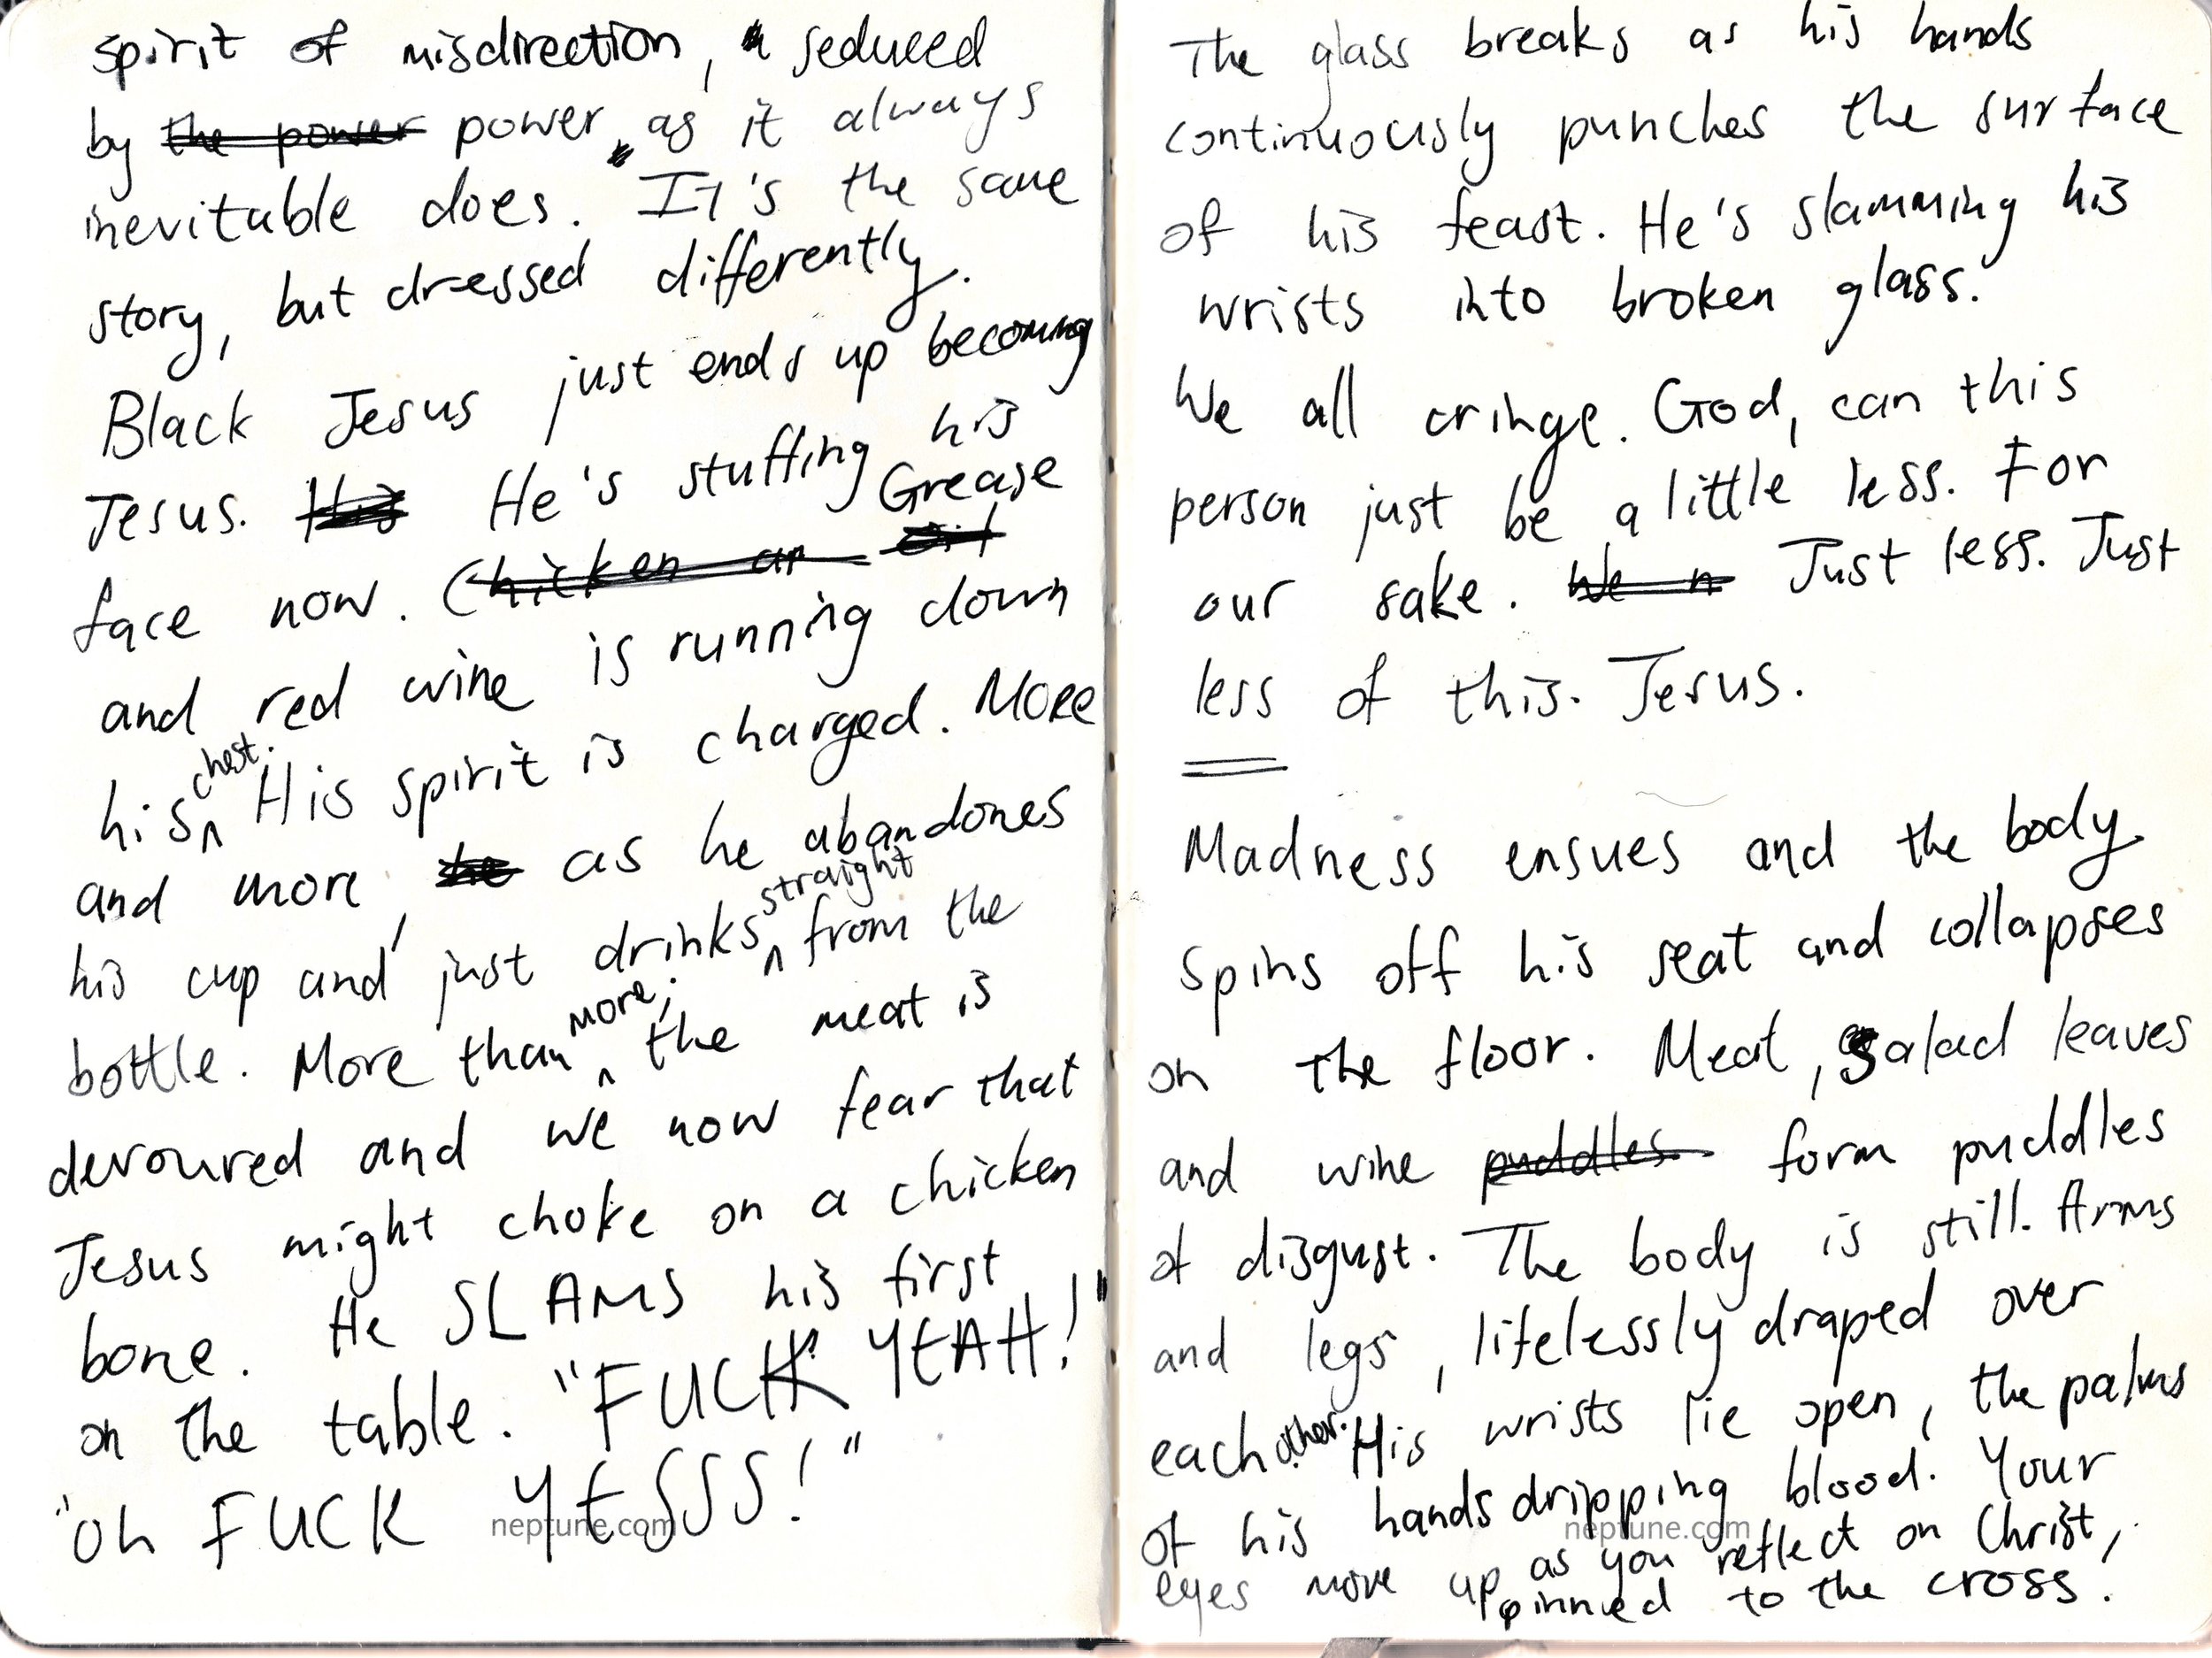 spirit of misdirection, seduced
by the power power, as it always
inevitable does. It's the same
story, but dressed differently.
Black Jesus just ends up becoming
Jesus. His He's stuffing his
face now. Chicken an oil Grease
and red wine is running down
his chest. His spirit is charged. More
and more, he as he abandones
his cup and just drinks straight from the
bottle. More than more; the meat is
devoured and we now fear that
Jesus might choke on a chicken
bone. He SLAMS his first
on the table. "FUCK YEAH!"
"oh FUCK YESSSS!"
neptune.com
The glass breaks as his hands
continuously punches the surface
of his feast. He's slamming his
wrists into broken glass.
We all cringe. God, can this
person just be a little less. For
our sake. We n Just less. Just
less of this. Jesus.
Madness ensues and the body
spins off his seat and collapses
on the floor. Meat, salad leaves
and wine puddles form puddles
of disgust. The body is still. Arms
and legs, lifelessly draped over
each other. His wrists lie open, the palms
of his hands dripping blood. Your
eyes move up as you reflect on Christ,
pinned to the cross.
neptune.com